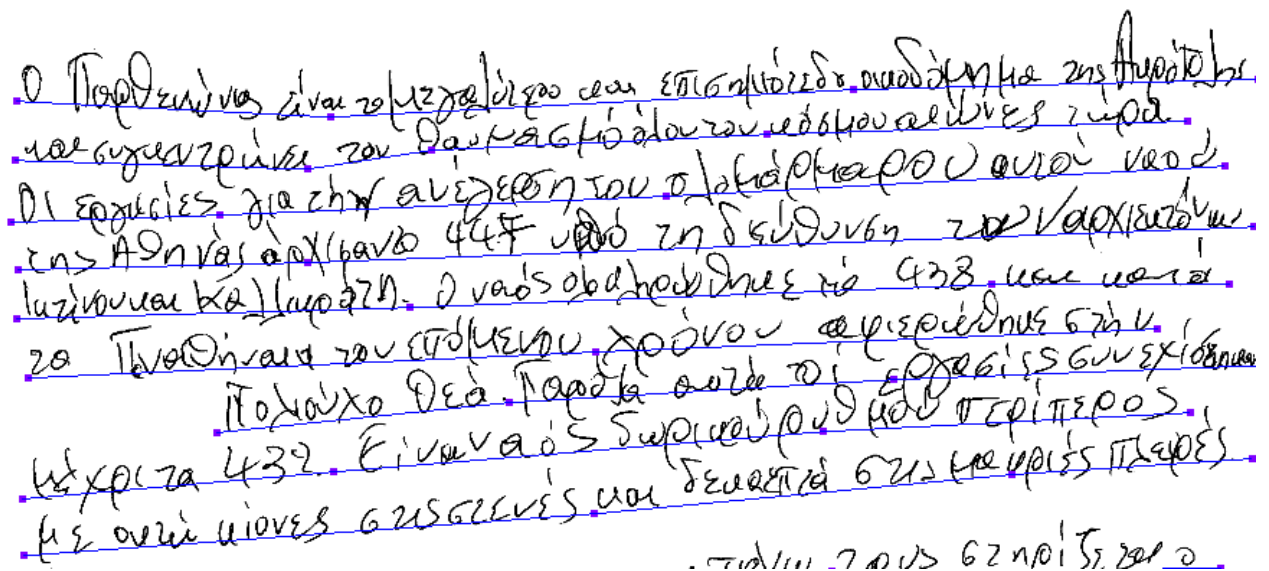 Ο Παρθενώνας είναι το μεγαλύτερο και επισημότερο οικοδόμημα της Ακρόπολης
και συγκεντρώνει τον θαυμασμό όλου του κόσμου αιώνες τώρα.
Οι εργασίες για την ανέγερση του ολομάρμαρου αυτού ναού
της Αθηνάς άρχισαν το 447 υπό τη διεύθυνση των αρχιτεκτόνων
Ικτίνου και Καλλικράτη. Ο ναός ολοκληρώθηκε το 438 και κατά
τα Παναθήναια του επόμενου χρόνου αφιερώθηκε στην
Πολιούχο θεά. Παρόλα αυτά οι εργασίες συνεχίστηκαν
μέχρι τα 432. Είναι ναός δωρικού ρυθμού περίπτερος,
με οκτώ κίονες στις στενές και δεκαεπτά στις μακριές πλευρές
πάνω τους στηρίζεται ο